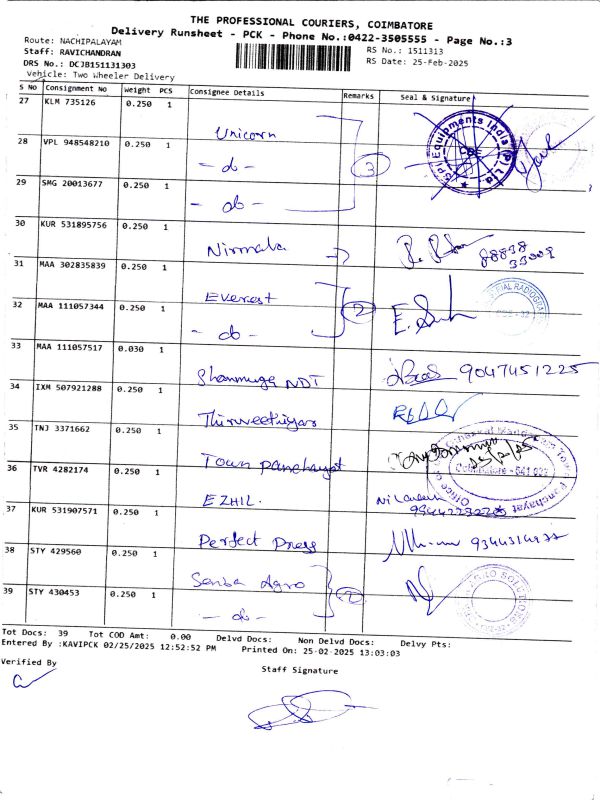 THE PROFESSIONAL COURIERS, COIMBATORE
Delivery Runsheet - PCK - Phone No.:0422-3505555 - Page No.:3
Route: NACHIPALAYAM
RS No.: 1511313
Staff: RAVICHANDRAN
RS Date: 25-Feb-2025
DRS No.: DCJB151131303
Vehicle: Two Wheeler Delivery
S No Consignment No Weight PCS Consignee Details Remarks Seal & Signature
27 KLM 735126 0.250 1 Unicorn
28 VPL 948548210 0.250 1 - do - 3
29 SMG 20013677 0.250 1 - do -
SPI Equipments India (P) Ltd.
30 KUR 531895756 0.250 1 Nirmala
88838
33009
31 MAA 302835839 0.250 1 Everest
32 MAA 111057344 0.250 1 - do - 2
33 MAA 111057517 0.030 1 Shanmuga NDT 9047451225
34 IXM 507921288 0.250 1
35 TNJ 3371662 0.250 1 Town panchayat
25/2/25
Coimbatore - 641 032
36 TVR 4282174 0.250 1 EZHIL.
37 KUR 531907571 0.250 1 Perfect Press
38 STY 429560 0.250 1 Agro
39 STY 430453 0.250 1 - do - 2
Tot Docs: 39 Tot COD Amt: 0.00 Delvd Docs: Non Delvd Docs: Delvy Pts:
Entered By :KAVIPCK 02/25/2025 12:52:52 PM Printed On: 25-02-2025 13:03:03
Verified By
Staff Signature